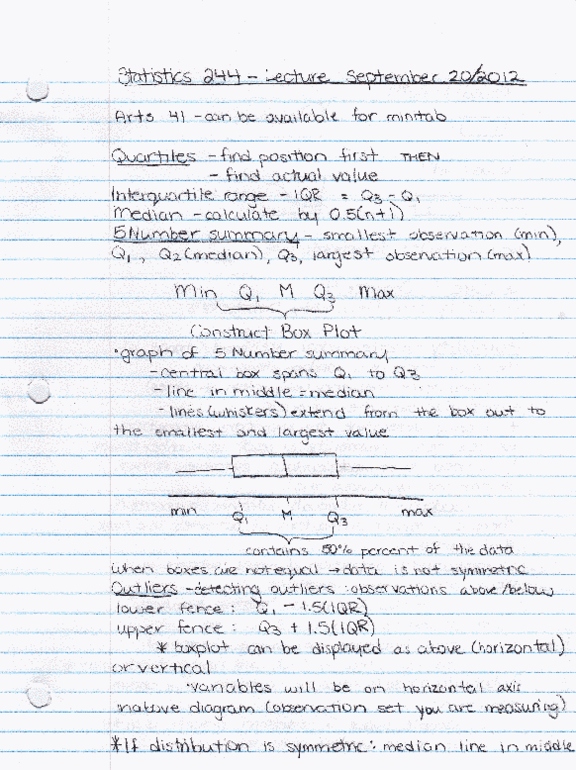 Statistics 244 - Lecture September 20/2012
Arts 41 - can be available for minitab
Quartiles - find position first THEN
- find actual value
Interquartile range - IQR = Q3 - Q1
Median - calculate by 0.5(n+1)
5 Number summary - smallest observation (min),
Q1, Q2 (median), Q3, largest observation (max)
Min Q1 M Q3 Max
Construct Box Plot
•graph of 5 Number summary
- central box spans Q1 to Q3
- line in middle = median
- lines (whiskers) extend from the box out to
the smallest and largest value
min Q1 M Q3 max
contains 50% percent of the data
when boxes are not equal → data is not symmetric
Outliers - detecting outliers : observations above/below
lower fence : Q1 - 1.5(IQR)
upper fence : Q3 + 1.5(IQR)
* boxplot can be displayed as above (horizontal)
or vertical
•variables will be on horizontal axis
in above diagram (observation set you are measuring)
*If distribution is symmetric : median line in middle